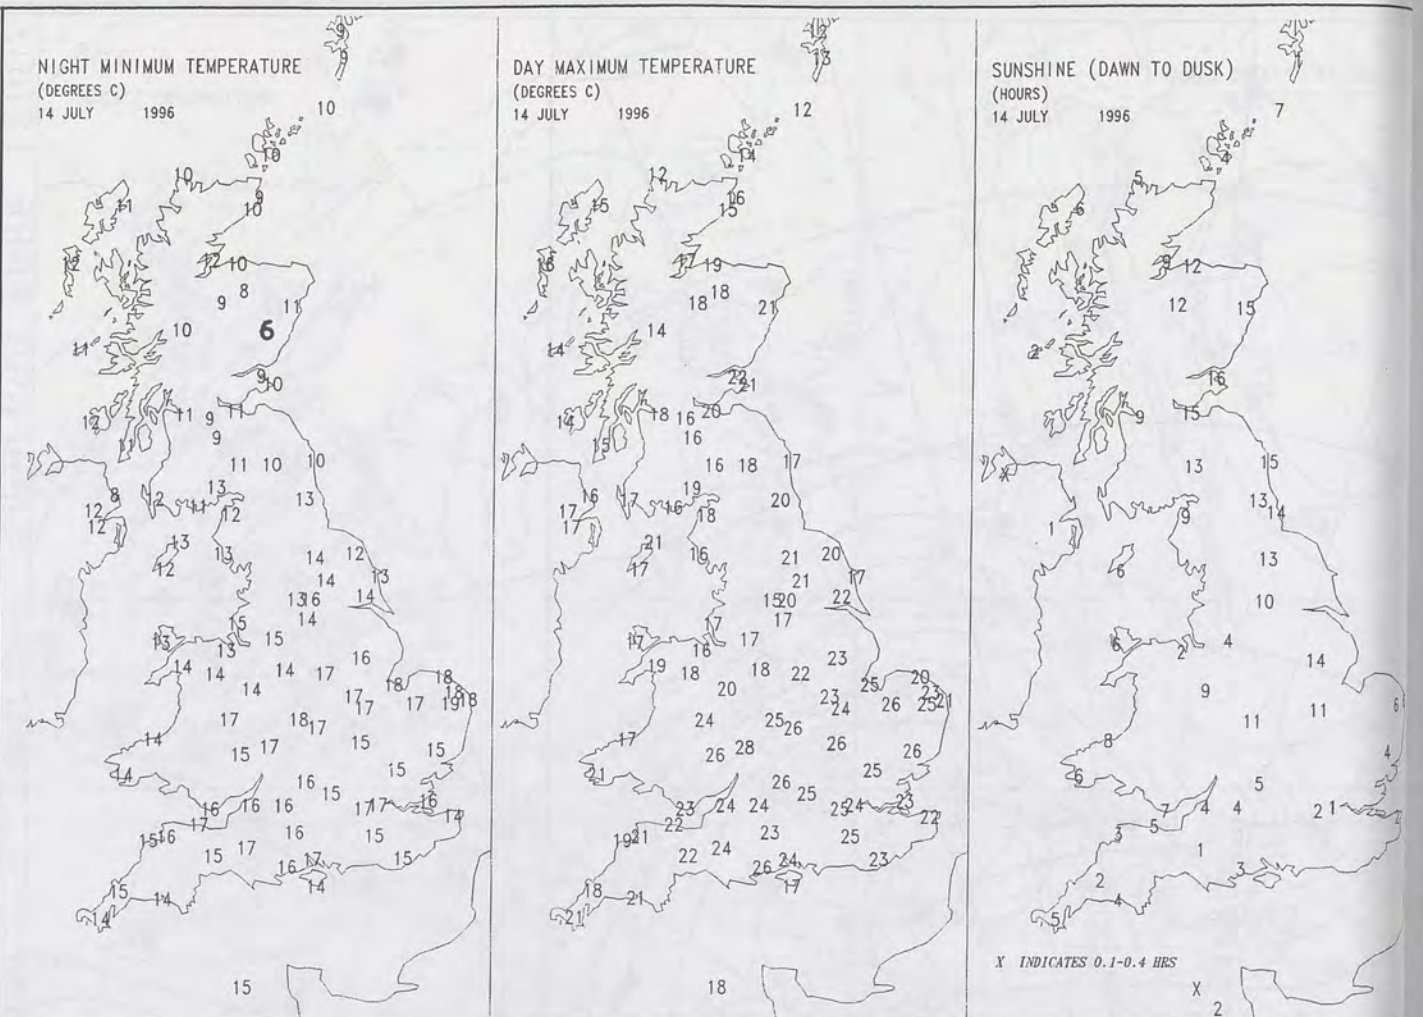 NIGHT MINIMUM TEMPERATURE
(DEGREES C)
14 JULY 1996
9
9
10
10
10
9
11
10
12
12 10
8
9
11
10
6
11
9
10
11
11
12
9
11
9
11 10 10
13
8
12
11
13
12
12
12
13
13
14
12
12
14
13
13 16
14
14
15
13
15
13
16
14
14
14
17
14
18
18
18
17
17
17
19 18
17
18
17
14
15
17
15
15
14
16
15
15
16
16
16
17 17
16
14
15 16
17
16
15
15
17
16
17
15
15
14
14
14
15
DAY MAXIMUM TEMPERATURE
(DEGREES C)
14 JULY 1996
12
13
12
14
12
16
15
15
16
17 19
18
18
21
14
14
22
21
14
18
16
20
15
16
16 18 17
19
16
17
16
20
17
18
17
21
16
21
20
17
21
17
15 20
22
17
17
17
17
16
19
18
18
22
23
20
25
20
23
21
23
24
26
25
24
25
26
17
26
28
26
26
21
26
25
25
23
24
24
25 24
23
22
19 21
22
23
25
22
24
26
24
23
18
21
17
21
18
SUNSHINE (DAWN TO DUSK)
(HOURS)
14 JULY 1996
1
7
4
5
6
9 12
12
15
2
16
9
15
X
13
15
13
14
1
9
6
13
10
6
2
4
14
9
11
11
6 6
8
6
4
5
7
4
4
2 1
3
5
1
3
2
4
5
X INDICATES 0.1-0.4 HRS
X
2